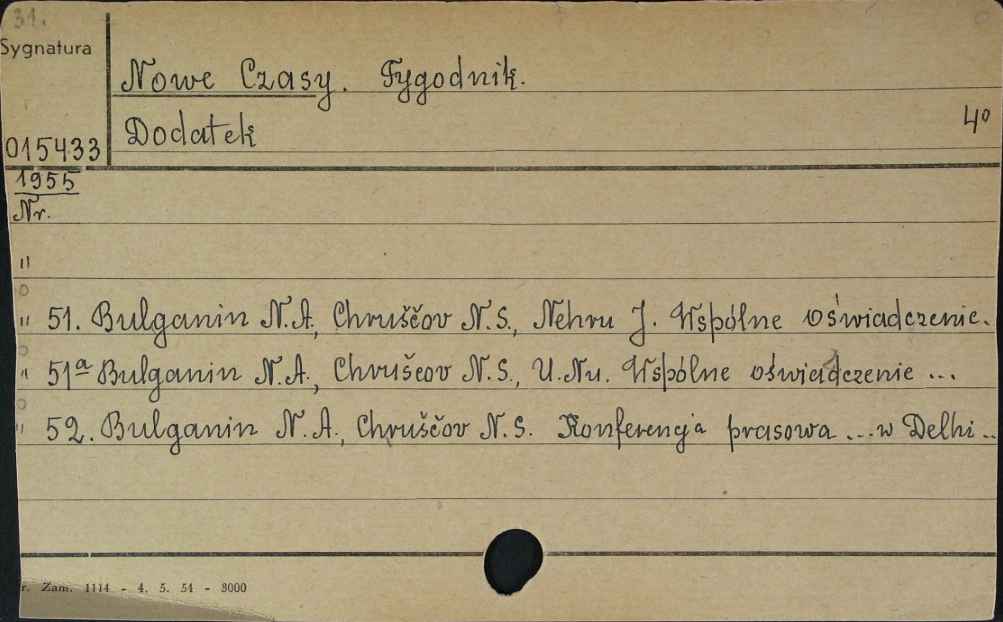 31.
Sygnatura
Nowe Czasy. Tygodnik.
Dodatek
4º
015433
1955
Nr.
"
" 51. Bulganin N.A., Chruščov N.S., Nehru J. Wspólne oświadczenie.
" 51ª Bulganin N.A., Chruščov N.S., U.Nu. Wspólne oświadczenie ...
" 52. Bulganin N.A., Chruščov N.S. Konferencja prasowa ... w Delhi ..
r. Zam. 1114 - 4. 5. 54 - 3000